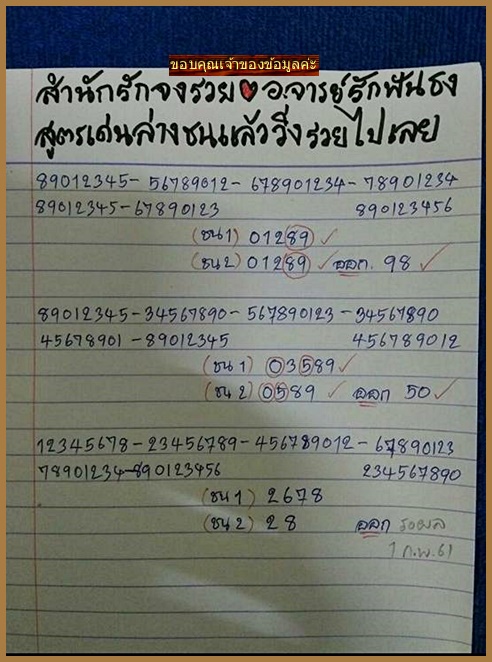 ขอบคุณเจ้าของข้อมูลค่ะ
สำนักรักจงรวย อ.จารย์รักพันธง
สูตรเด่นล่างชนแล้ววิ่งรวยไปเลย
89012345 - 56789012 - 678901234 - 78901234
89012345 - 67890123 890123456
(ชน 1) 01289 ✓
(ชน 2) 01289 ✓ ออก. 98 ✓
89012345 - 34567890 - 567890123 - 34567890
45678901 - 89012345 456789012
(ชน 1) 03589 ✓
(ชน 2) 0589 ✓ ออก 50 ✓
12345678 - 23456789 - 456789012 - 67890123
78901234 - 890123456 234567890
(ชน 1) 2678
(ชน 2) 28 ออก รอผล
1 ก.พ.61